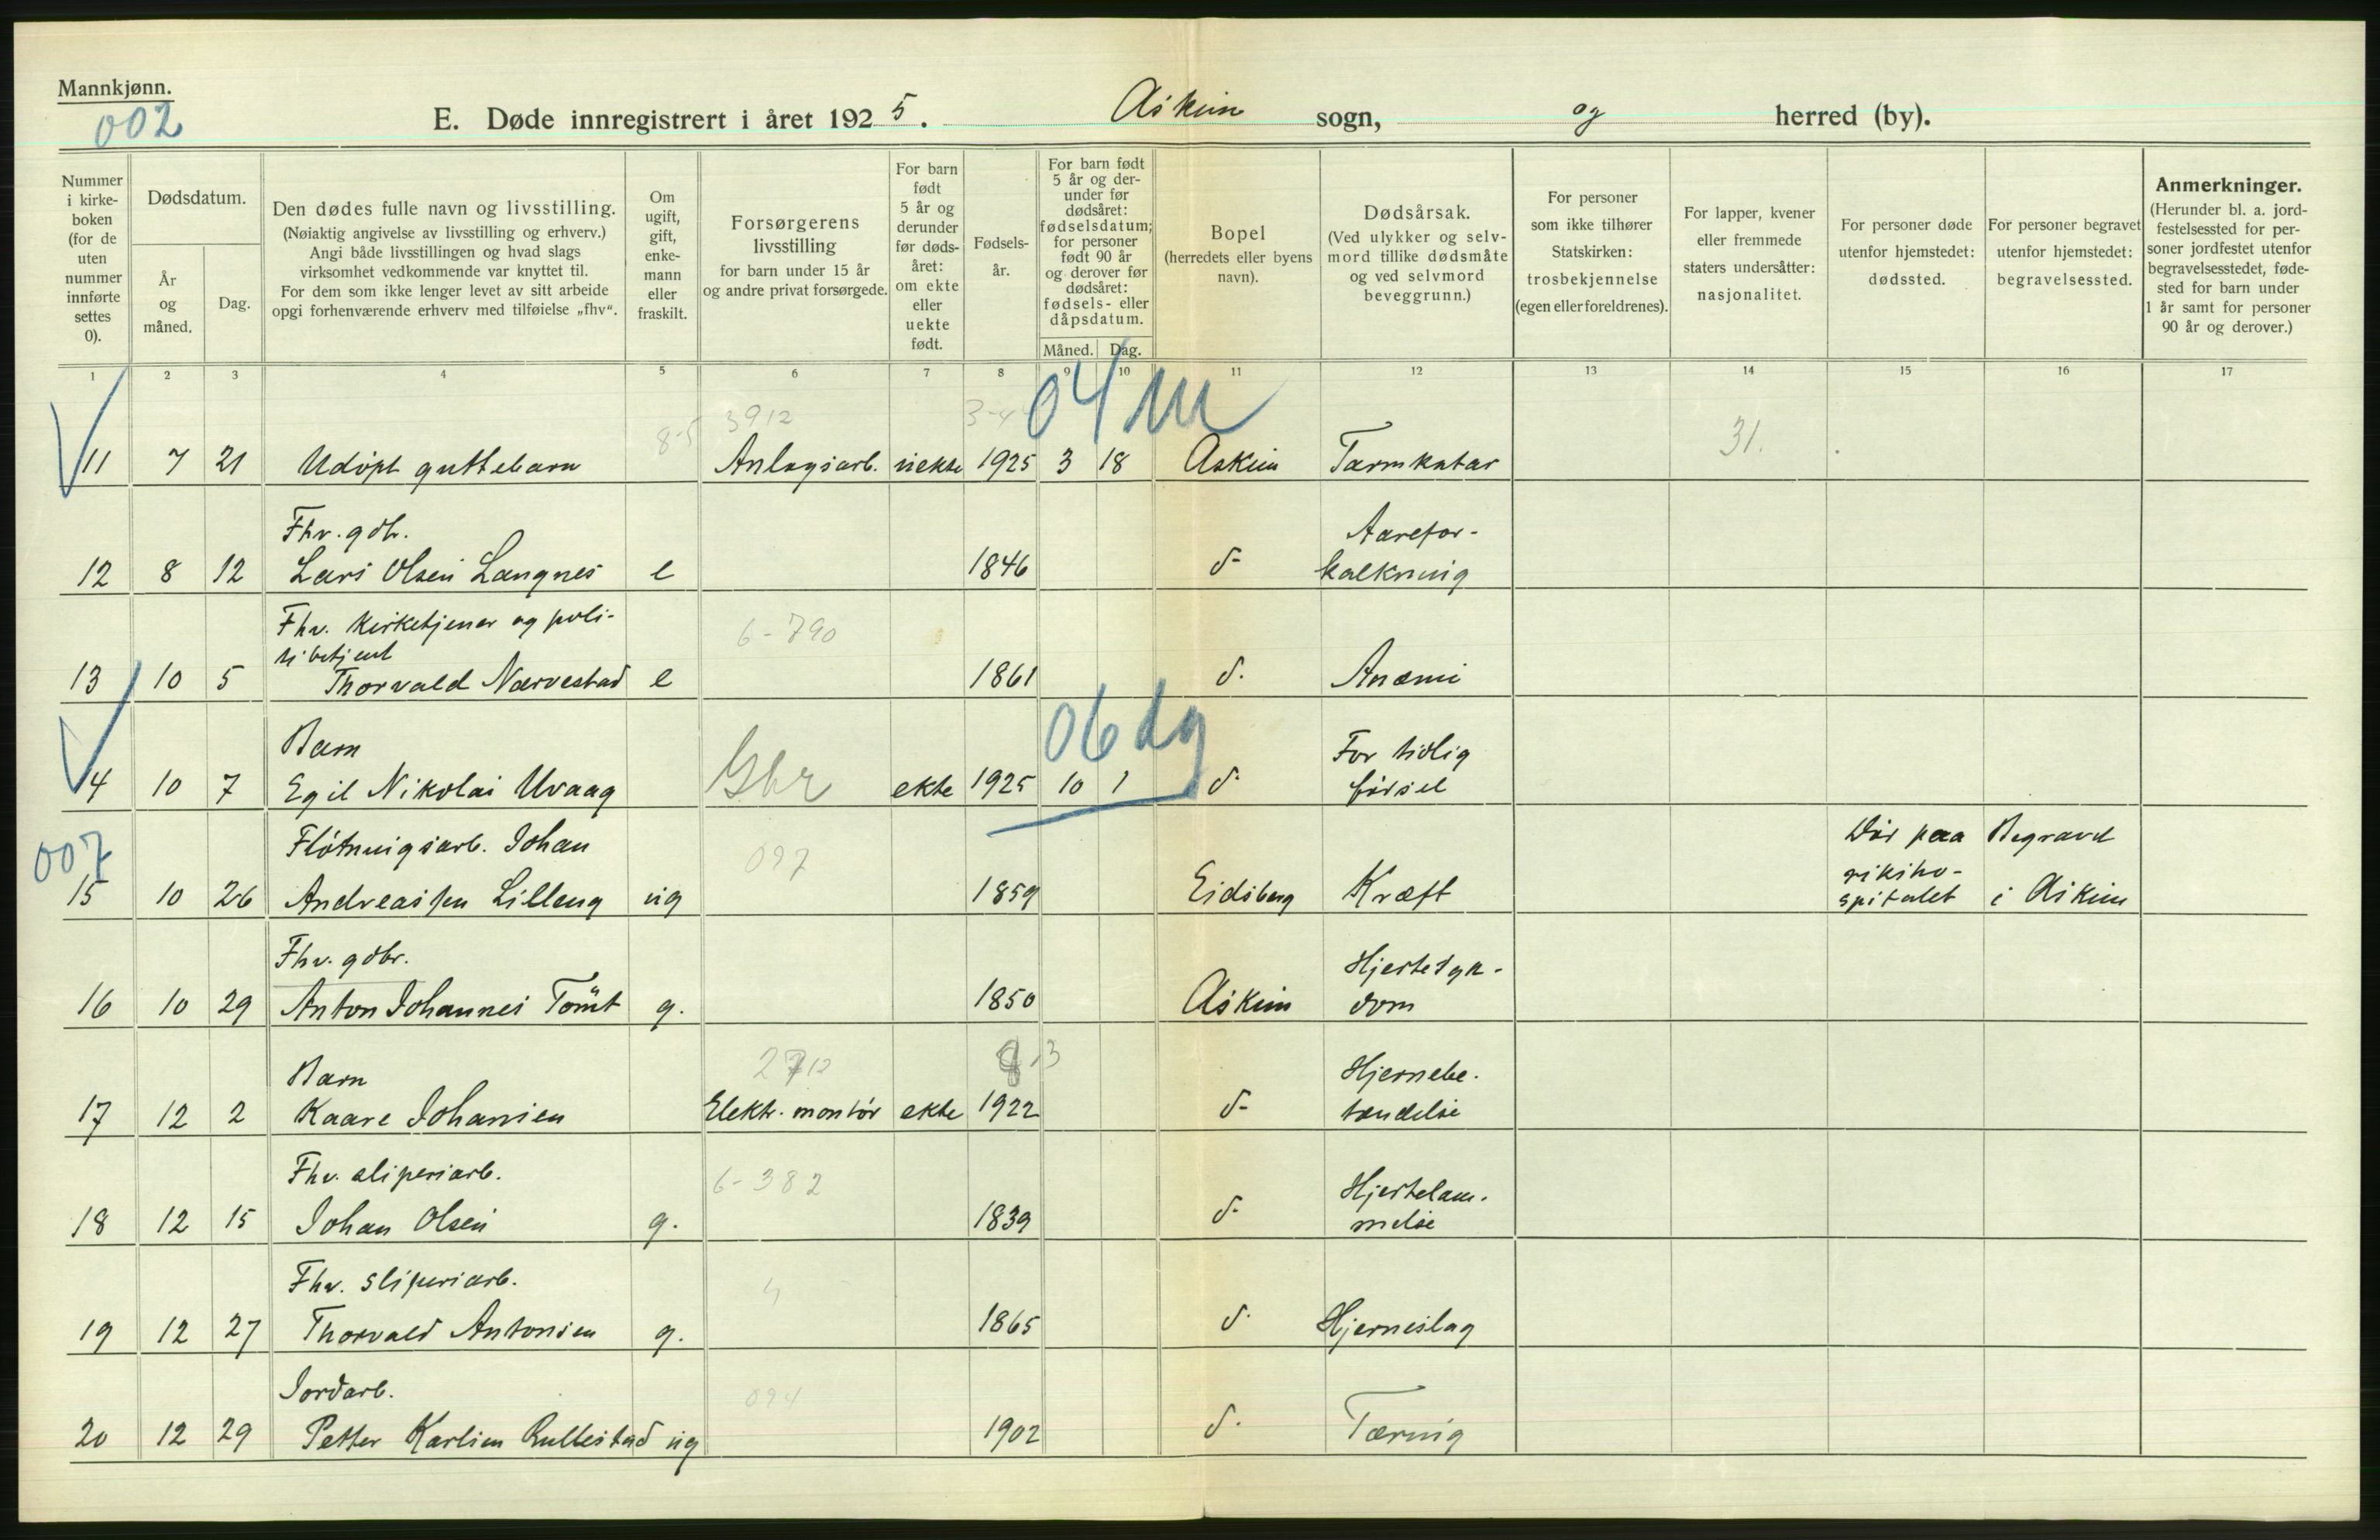 Mannkjønn.
002
E. Døde innregistrert i året 1925. Askim sogn, og herred (by).
Nummer i kirkeboken (for de uten nummer innførte settes 0).
Dødsdatum.
År og måned.
Dag.
Den dødes fulle navn og livsstilling.
(Nøiaktig angivelse av livsstilling og erhverv.)
Angi både livsstillingen og hvad slags
virksomhet vedkommende var knyttet til.
For dem som ikke lenger levet av sitt arbeide
opgi forhenværende erhverv med tilføielse „fhv“.
Om ugift, gift, enkemann eller fraskilt.
Forsørgerens livsstilling
for barn under 15 år
og andre privat forsørgede.
For barn født 5 år og derunder før dødsåret: om ekte eller uekte født.
Fødselsår.
For barn født 5 år og derunder før dødsåret: fødselsdatum; for personer født 90 år og derover før dødsåret: fødsels- eller dåpsdatum.
Måned. Dag.
Bopel
(herredets eller byens navn).
Dødsårsak.
(Ved ulykker og selvmord tillike dødsmåte og ved selvmord beveggrunn.)
For personer som ikke tilhører Statskirken: trosbekjennelse (egen eller foreldrenes).
For lapper, kvener eller fremmede staters undersåtter: nasjonalitet.
For personer døde utenfor hjemstedet: dødssted.
For personer begravet utenfor hjemstedet: begravelsessted.
Anmerkninger.
(Herunder bl. a. jordfestelsessted for personer jordfestet utenfor begravelsesstedet, fødested for barn under 1 år samt for personer 90 år og derover.)
1 2 3 4 5 6 7 8 9 10 11 12 13 14 15 16 17
8-5 3912 3-4 04 m 31.
11 7 21 Udøpt guttebarn Anlegsarb. uekte 1925 3 18 Askim Tarmkatar
Fhv. gdbr. Aarefor-
12 8 12 Lars Olsen Langnes e 1846 d- kalkning
Fhv. kirketjener og poli-
tibetjent 6-790
13 10 5 Thorvald Nærvestad e 1861 d. Anæmi
Barn 06 dg For tidlig
14 10 7 Egil Nikolai Uvaag Gbr ekte 1925 10 1 d- fødsel
007 Fløtningsarb. Johan 097 Død paa Begravd
riksho-
15 10 26 Andreassen Lilleng ug 1859 Eidsberg Kræft spitalet i Askim
Fhv. gdbr. Hjertesyk-
16 10 29 Anton Johannes Tomt g. 1850 Askim dom
Barn 2712 13 Hjernebe-
17 12 2 Kaare Johansen Elektr. montør ekte 1922 d- tændelse
Fhv. sliperiarb. 6-382 Hjertelam-
18 12 15 Johan Olsen g. 1839 d- melse
Fhv. sliperiarb.
19 12 27 Thorvald Antonsen g. 1865 d. Hjerneslag
Jordarb. 094
20 12 29 Petter Karlsen Rullestad ug 1902 d. Tæring